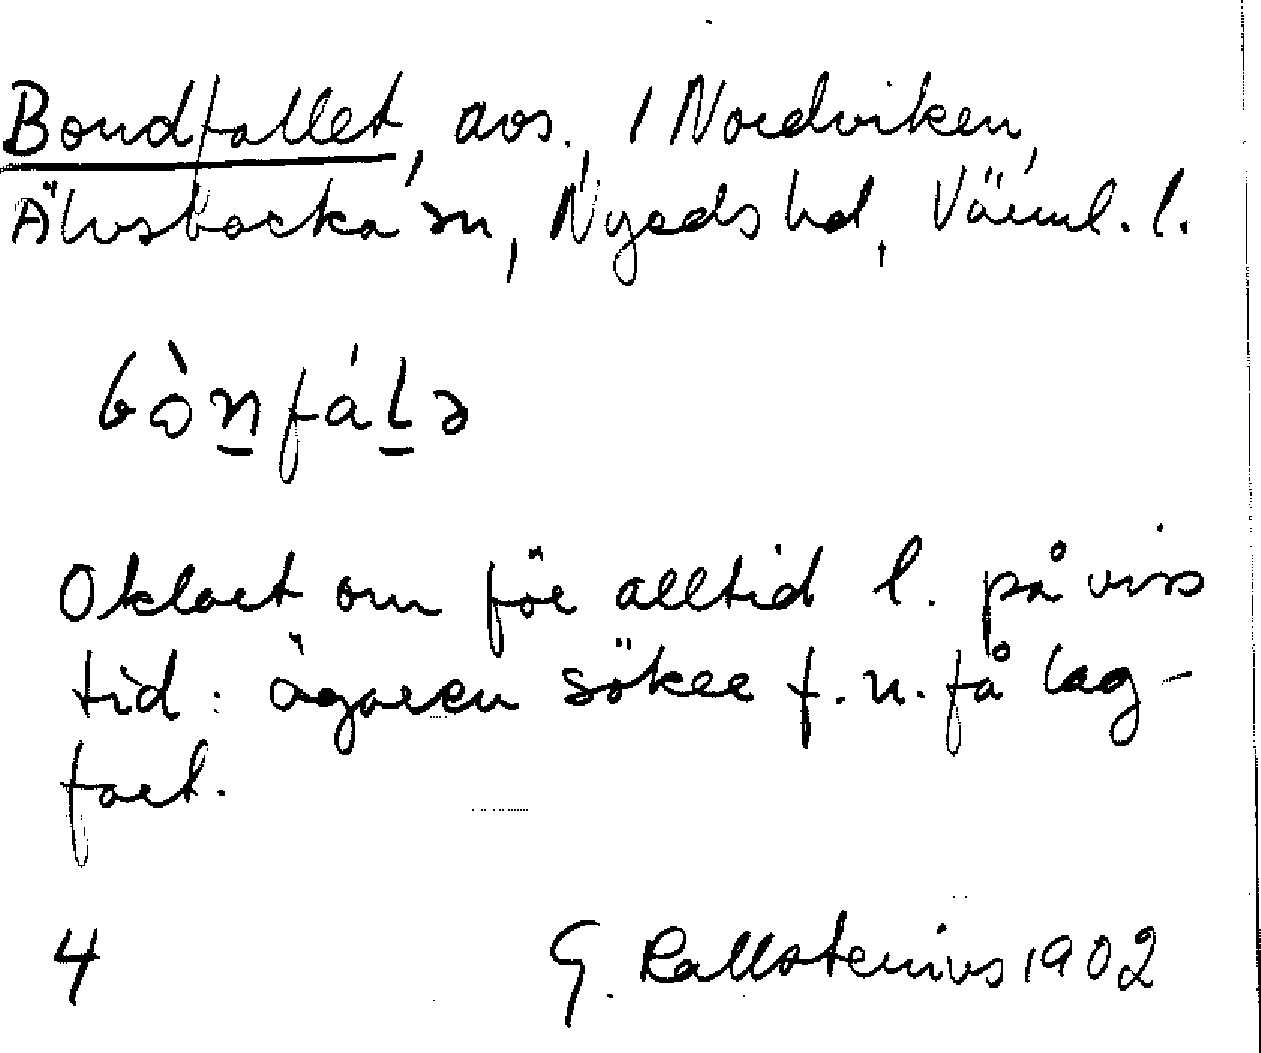 Bondfallet, avs., i Nordviken,
Älvsbacka sn, Nyeds hd, Värml. l.
bo̊̀n̲fál̲ə
Oklart om för alltid l. på viss
tid: ägaren söker f. n. få lag-
fart.
4 G. Kallstenius 1902